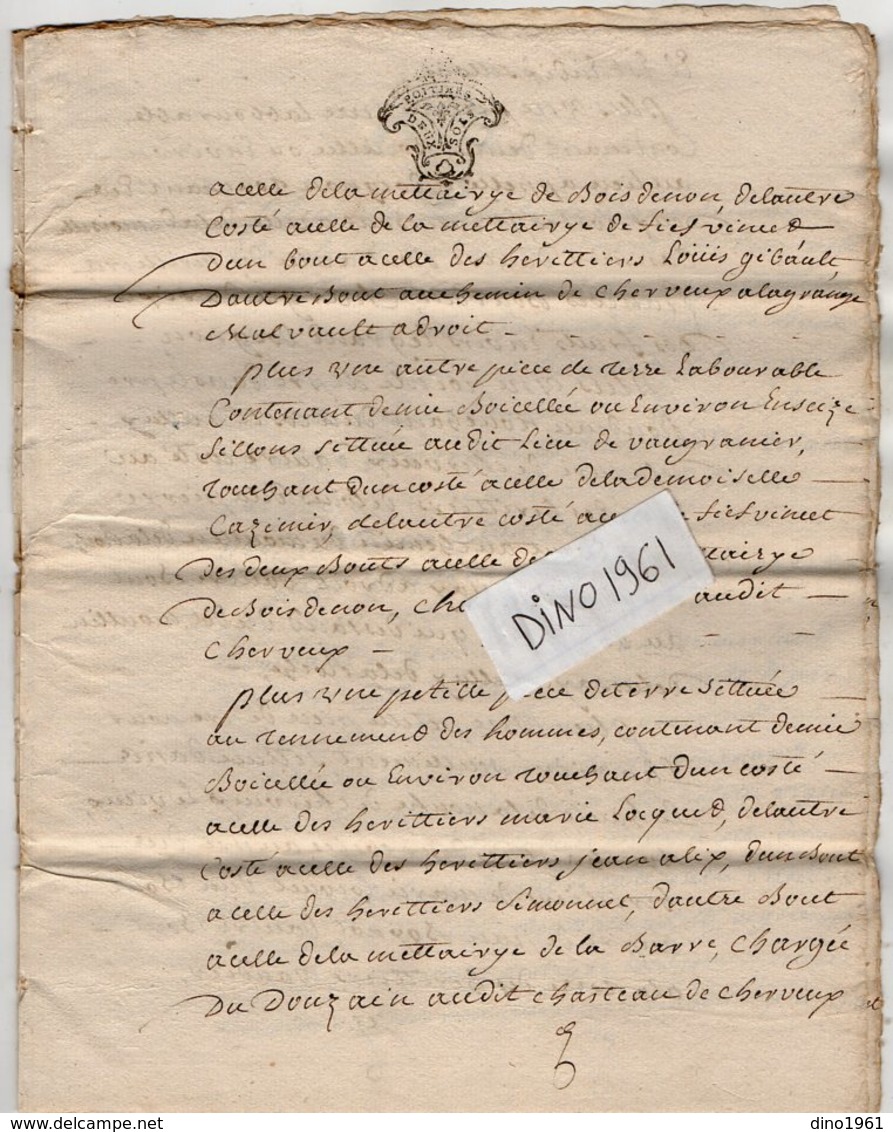 POITIERS
DEUX SOLS
acelle dela mettairye de Boisdenon, delautre
Costé acelle de la mettairye de fiefvinet
Dun bout acelle des herittiers Loüis gibault
Dautre Bout auchemin de Cherveux alagrange
Malvault adroit -
plus une autre piece de terre Labourable
Contenant demie Boicellée ou Environ Enseize
Sillons sittuée audit Lieu de vaugranier,
touchant dun costé acelle delademoiselle
Cazimir, delautre costé ac fiefvinet
des deux Bouts acelle del ttairye
de Boisdenon, Ch audit
Cherveux -
plus une petitte piece deterre sittuée
au tennement des hommes, contenant demie
Boicellée ou Environ touchant dun costé
acelle des herittiers marie Locquet, delautre
Costé acelle des herittiers jean alix, dun Bout
acelle des herittiers Simonnet, dautre Bout
acelle dela mettairye de la Barre, Chargée
Du Douzain audit chasteau de Cherveux
DiNO1961
dino1961